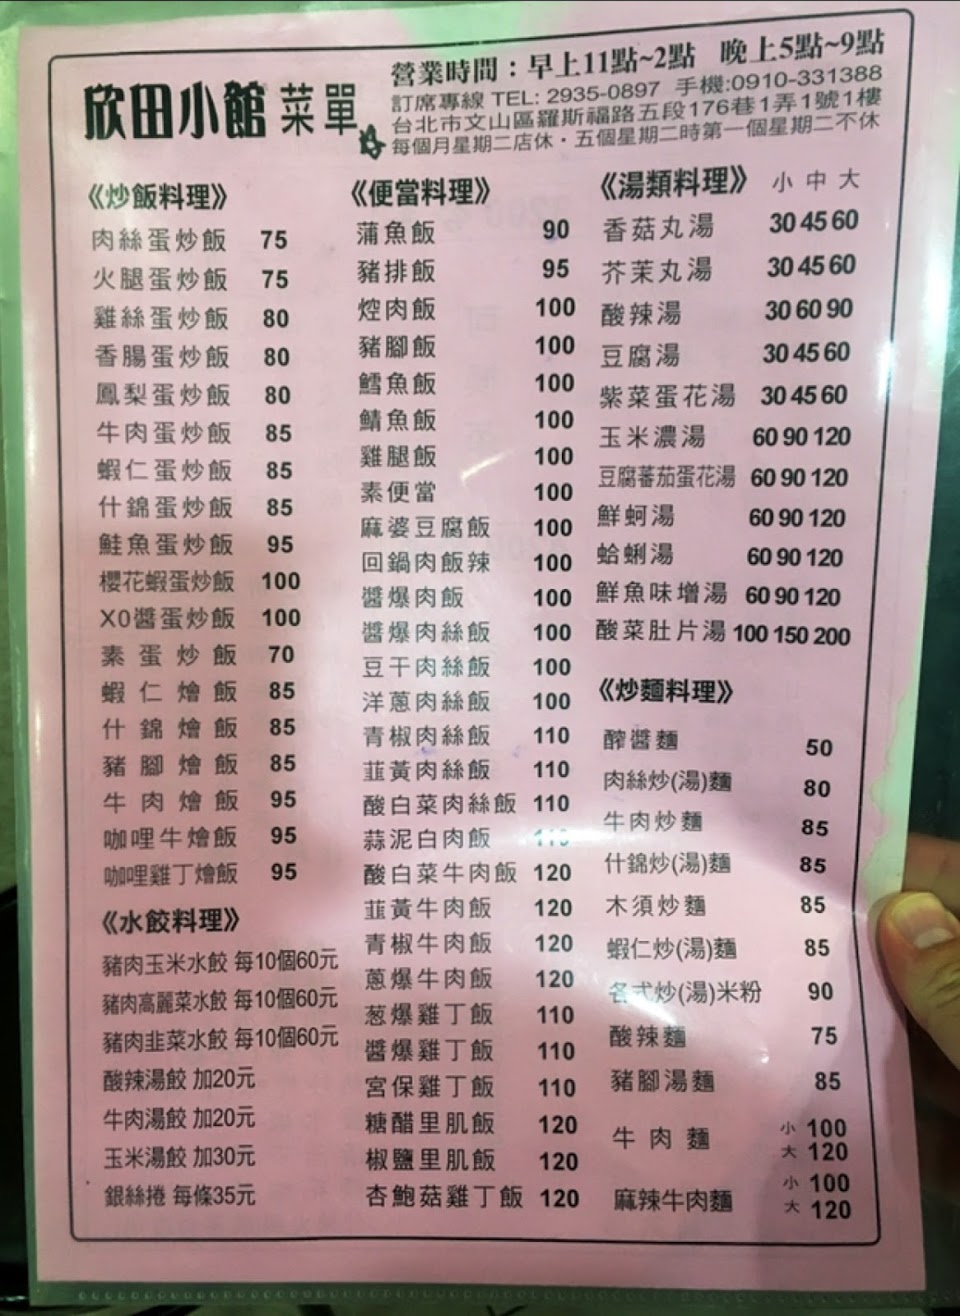 欣田小館 菜單
營業時間：早上11點~2點 晚上5點~9點
訂席專線 TEL: 2935-0897 手機:0910-331388
台北市文山區羅斯福路五段176巷1弄1號1樓
每個月星期二店休・五個星期二時第一個星期二不休
《炒飯料理》
肉絲蛋炒飯 75
火腿蛋炒飯 75
雞絲蛋炒飯 80
香腸蛋炒飯 80
鳳梨蛋炒飯 80
牛肉蛋炒飯 85
蝦仁蛋炒飯 85
什錦蛋炒飯 85
鮭魚蛋炒飯 95
櫻花蝦蛋炒飯 100
XO醬蛋炒飯 100
素蛋炒飯 70
蝦仁燴飯 85
什錦燴飯 85
豬腳燴飯 85
牛肉燴飯 95
咖哩牛燴飯 95
咖哩雞丁燴飯 95
《水餃料理》
豬肉玉米水餃 每10個60元
豬肉高麗菜水餃 每10個60元
豬肉韭菜水餃 每10個60元
酸辣湯餃 加20元
牛肉湯餃 加20元
玉米湯餃 加30元
銀絲捲 每條35元
《便當料理》
蒲魚飯 90
豬排飯 95
焢肉飯 100
豬腳飯 100
鱈魚飯 100
鯖魚飯 100
雞腿飯 100
素便當 100
麻婆豆腐飯 100
回鍋肉飯辣 100
醬爆肉飯 100
醬爆肉絲飯 100
豆干肉絲飯 100
洋蔥肉絲飯 100
青椒肉絲飯 110
韮黃肉絲飯 110
酸白菜肉絲飯 110
蒜泥白肉飯 110
酸白菜牛肉飯 120
韮黃牛肉飯 120
青椒牛肉飯 120
蔥爆牛肉飯 120
葱爆雞丁飯 110
醬爆雞丁飯 110
宮保雞丁飯 110
糖醋里肌飯 120
椒鹽里肌飯 120
杏鮑菇雞丁飯 120
《湯類料理》 小 中 大
香菇丸湯 30 45 60
芥茉丸湯 30 45 60
酸辣湯 30 60 90
豆腐湯 30 45 60
紫菜蛋花湯 30 45 60
玉米濃湯 60 90 120
豆腐蕃茄蛋花湯 60 90 120
鮮蚵湯 60 90 120
蛤蜊湯 60 90 120
鮮魚味增湯 60 90 120
酸菜肚片湯 100 150 200
《炒麵料理》
醡醬麵 50
肉絲炒(湯)麵 80
牛肉炒麵 85
什錦炒(湯)麵 85
木須炒麵 85
蝦仁炒(湯)麵 85
各式炒(湯)米粉 90
酸辣麵 75
豬腳湯麵 85
牛肉麵 小 100
大 120
麻辣牛肉麵 小 100
大 120